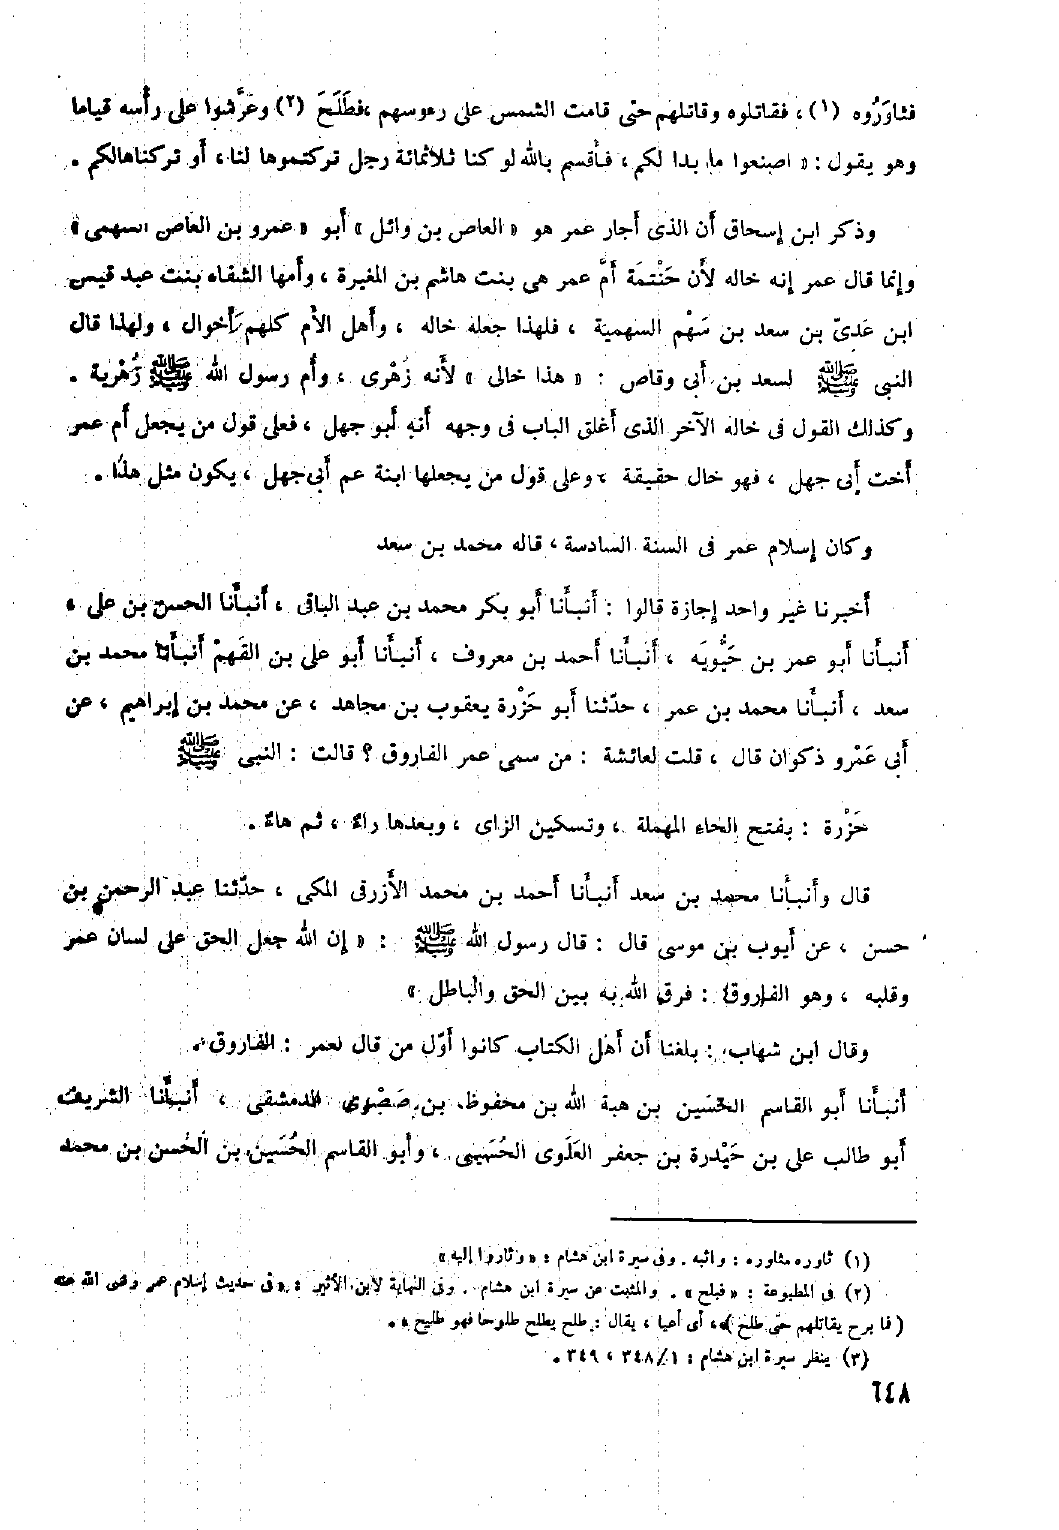 فثاوَرُوه (١) ، فقاتلوه وقاتلهم حتى قامت الشمس على رءوسهم ، فطَلَحَ (٢) وعَرَّشوا على رأسه قياما
وهو يقول : « اصنعوا ما بدا لكم ، فأقسم بالله لو كنا ثلاثمائة رجل تركتموها لنا ، أو تركناها لكم .
وذكر ابن إسحاق أن الذى أجار عمر هو « العاص بن وائل » أبو « عمرو بن العاص السهمى »
وإنما قال عمر إنه خاله لأن حَنْتمَة أمَّ عمر هى بنت هاشم بن المغيرة ، وأمها الشفاء بنت عبد قيس
ابن عَدىّ بن سعد بن سَهْم السهمية ، فلهذا جعله خاله ، وأهل الأم كلهم أخوال ، ولهذا قال
النبى ﷺ لسعد بن أبى وقاص : « هذا خالى » لأنه زُهْرى ، وأم رسول الله ﷺ زُهْرية .
وكذلك القول فى خاله الآخر الذى أغلق الباب فى وجهه أنه أبو جهل ، فعلى قول من يجعل أم عمر
أخت أبى جهل ، فهو خال حقيقة ، وعلى قول من يجعلها ابنة عم أبى جهل ، يكون مثل هذا .
وكان إسلام عمر فى السنة السادسة ، قاله محمد بن سعد
أخبرنا غير واحد إجازة قالوا : أنبأنا أبو بكر محمد بن عبد الباقى ، أنبأنا الحسن بن على ،
أنبأنا أبو عمر بن حَيُّويَه ، أنبأنا أحمد بن معروف ، أنبأنا أبو على بن الفَهمْ أنبأنا محمد بن
سعد ، أنبأنا محمد بن عمر ، حدّثنا أبو حَزْرة يعقوب بن مجاهد ، عن محمد بن إبراهيم ، عن
أبى عَمْرو ذكوان قال ، قلت لعائشة : من سمى عمر الفاروق ؟ قالت : النبى ﷺ
حَزْرة : بفتح الحاء المهملة ، وتسكين الزاى ، وبعدها راءٌ ، ثم هاءٌ .
قال وأنبأنا محمد بن سعد أنبأنا أحمد بن محمد الأزرقى المكى ، حدّثنا عبد الرحمن بن
حسن ، عن أيوب بن موسى قال : قال رسول الله ﷺ : « إن الله جعل الحق على لسان عمر
وقلبه ، وهو الفاروق : فرق الله به بين الحق والباطل »
وقال ابن شهاب : بلغنا أن أهل الكتاب كانوا أوّل من قال لعمر : الفاروق .
أنبأنا أبو القاسم الحسَين بن هبة الله بن محفوظ بن صَصْرى الدمشقى ، أنبأنا الشريف
أبو طالب على بن حَيْدرة بن جعفر العَلَوى الحُسَينى ، وأبو القاسم الحُسَين بن الحُسن بن محمد
(١) ثاوره مثاوره : واثبه . وفى سيرة ابن هشام : « وثاروا إليه »
(٢) فى المطبوعة : « فبلح » . والمثبت عن سيرة ابن هشام . وفى النهاية لابن الأثير : « فى حديث إسلام عمر رضى الله عنه
( فا برح يقاتلهم حتى طلح ) » ، أى أعيا ، يقال : طلح يطلح طلوحا فهو طليح » .
(٣) ينظر سيرة ابن هشام : ١/ ٣٤٨ ، ٣٤٩ .
٨٤٦